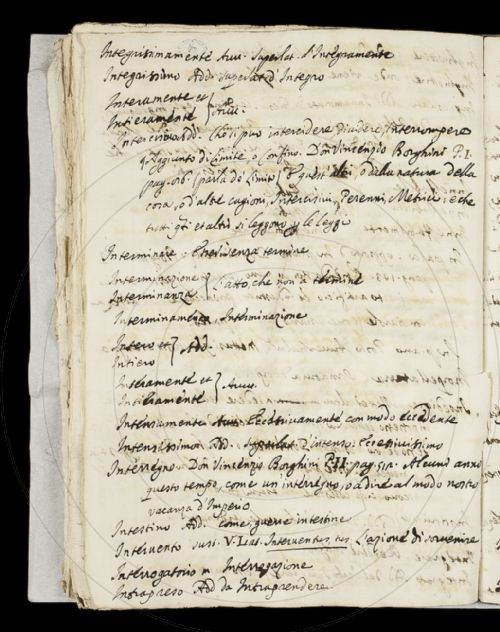 Integrissimamente Avv. Superlat. d'Integramente
Integrissimo Add. Superlat. d'Integro
Interamente et
Intieramente } Avv.
Intercisivo Add. Che si può intercidere dividere Interrompere
Aggiunto di Limite, o Confino. Don Vincenzio Borghini P. I.
pag. (parla de Limiti) E questi altri, o dalla natura della
cosa, o d'altre cagioni, Intercisivi, Perenni, Metrici: e che
tutti qti et altri si leggono
Interminare senza termine
Interminazione e
Interminanza } L'atto, che non à termine
Interminamento Interminazione
Intero et
Intiero } Add.
Interamente et
Intieramente } Avv.
Intensivamente Avv. Eccessivamente con modo eccedente
Intensissimo Add. Superlat. d'intenso: Eccessivissimo
Interregno. Don Vincenzio Borghini P. II. pag. Alcuni anno
questo tempo, come un interregno, o a dire al modo nostro
vacanza d'Impero
Intestino Add. come guerre intestine
Intervento sust. V. Lat. Interventus, tus L'azione di sovvenire
Interrogatorio m Interrogazione
Intrapreso Add da Intraprendere.